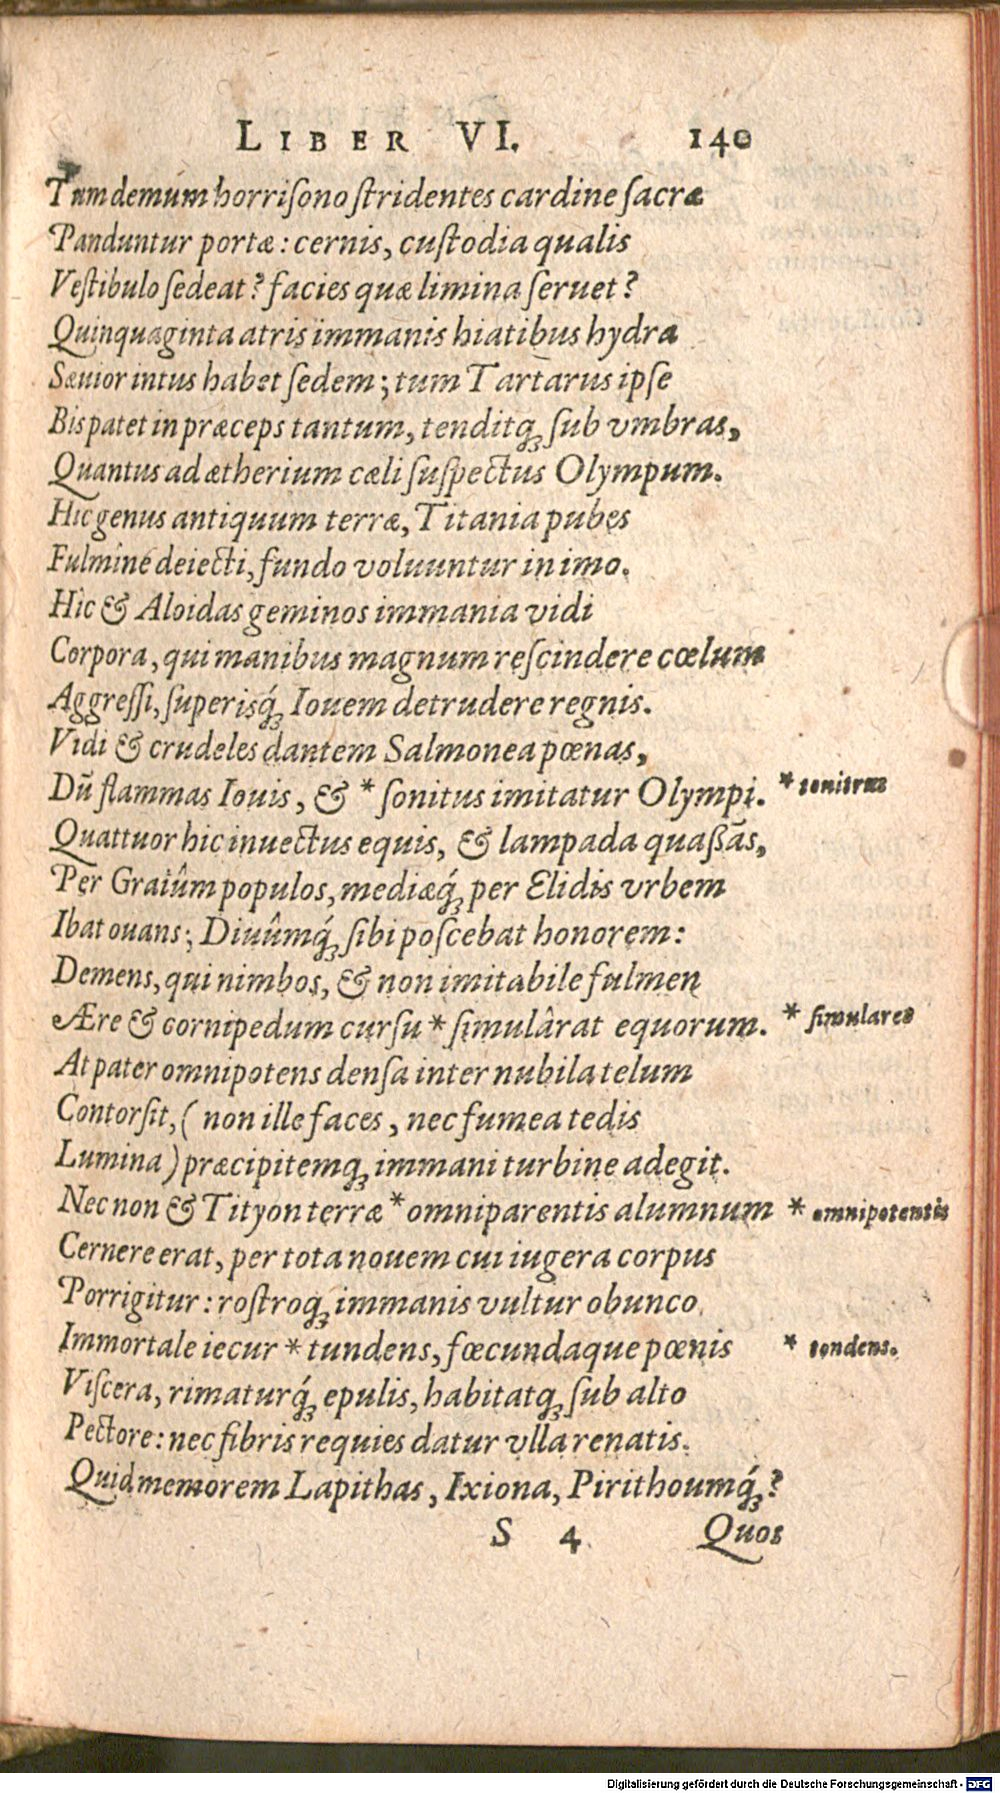 LIBER VI. 140
Tum demum horrisono stridentes cardine sacræ
Panduntur portæ: cernis, custodia qualis
Vestibulo sedeat? facies quæ limina seruet?
Quinquaginta atris immanis hiatibus hydra
Sæuior intus habet sedem; tum Tartarus ipse
Bis patet in præceps tantum, tenditq́; sub vmbras,
Quantus ad ætherium cæli suspectus Olympum.
Hic genus antiquum terræ, Titania pubes
Fulmine deiecti, fundo voluuntur in imo.
Hic & Aloidas geminos immania vidi
Corpora, qui manibus magnum rescindere cœlum
Aggressi, superisq́; Iouem detrudere regnis.
Vidi & crudeles dantem Salmonea pœnas,
Dū flammas Iouis, & * sonitus imitatur Olympi. * tonitrus
Quattuor hic inuectus equis, & lampada quaßās,
Per Graiûm populos, mediæq́; per Elidis vrbem
Ibat ouans; Diuûmq́; sibi poscebat honorem:
Demens, qui nimbos, & non imitabile fulmen
Ære & cornipedum cursu * simulârat equorum. * simularet
At pater omnipotens densa inter nubila telum
Contorsit, (non ille faces, nec fumea tedis
Lumina) præcipitemq; immani turbine adegit.
Nec non & Tityon terræ * omniparentis alumnum * omnipotentis
Cernere erat, per tota nouem cui iugera corpus
Porrigitur: rostroq; immanis vultur obunco
Immortale iecur * tundens, fœcundaque pœnis * tondens.
Viscera, rimaturq́; epulis, habitatq; sub alto
Pectore: nec fibris requies datur vlla renatis.
Quid memorem Lapithas, Ixiona, Pirithoumq́;?
S 4 Quos
Digitalisierung gefördert durch die Deutsche Forschungsgemeinschaft - DFG